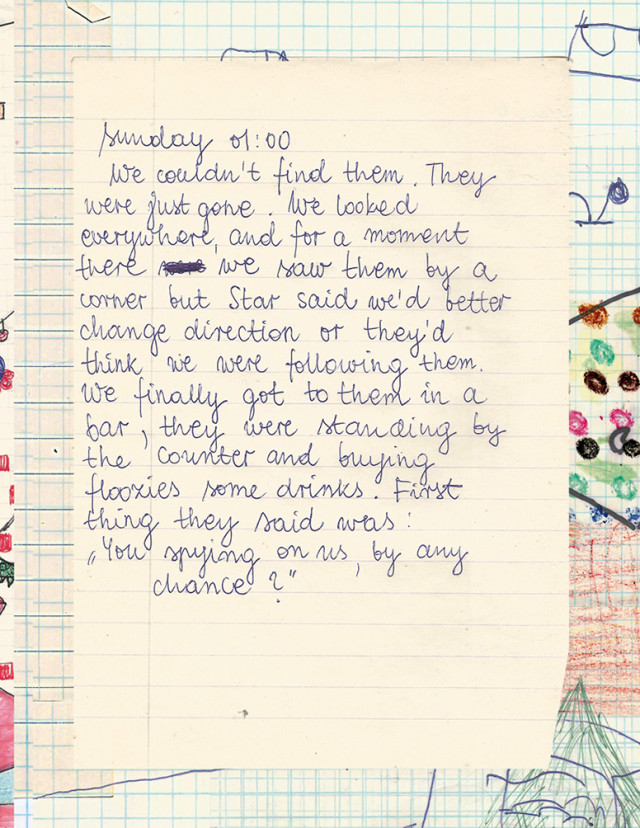 Sunday 01:00
We couldn't find them. They
were just gone. We looked
everywhere, and for a moment
there we saw them by a
corner but Star said we'd better
change direction or they'd
think we were following them.
We finally got to them in a
bar, they were standing by
the counter and buying
floozies some drinks. First
thing they said was:
„You spying on us, by any
chance?"